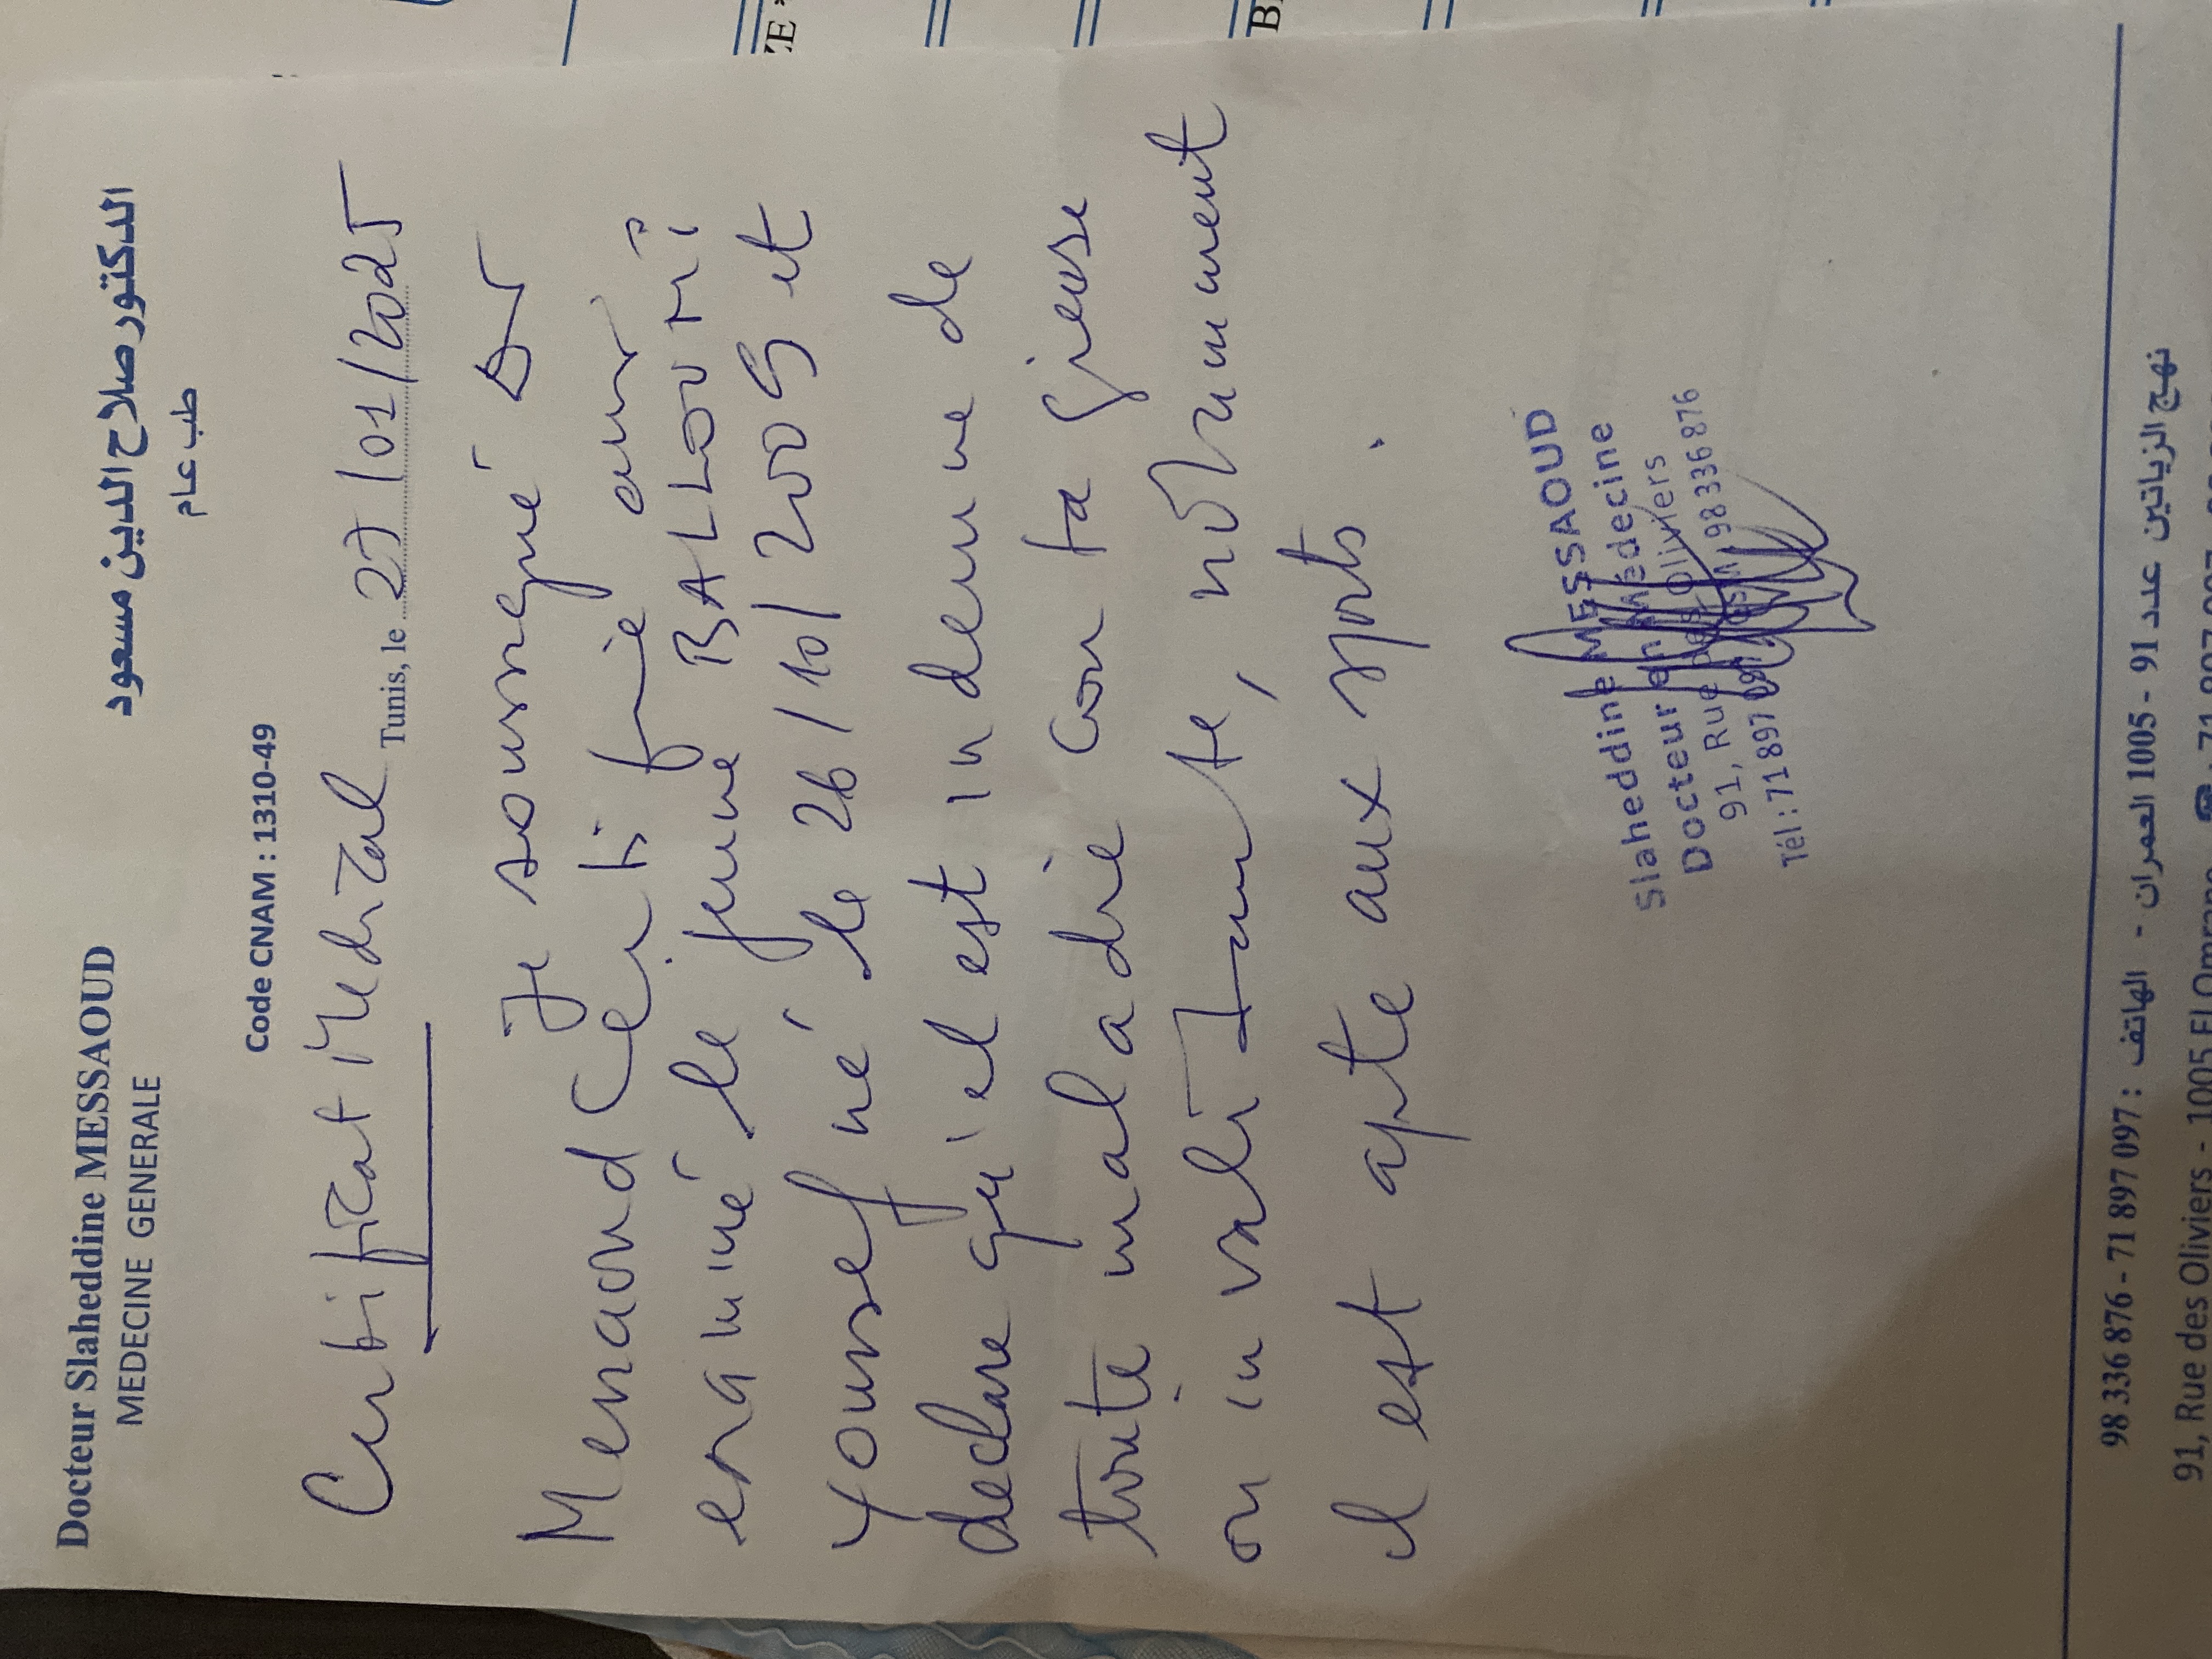 Docteur Slaheddine MESSAOUD
MEDECINE GENERALE
الدكتور صلاح الدين مسعود
طب عام
Code CNAM : 1310-49
Certificat Medical
Tunis, le 27/01/2025
Je soussigné Dr
Messaoud Certifie avoir
examiné le jeune BALLOUMI
Youssef né, le 26/10/2009 et
declare qu'il est indemne de
toute maladie contagieuse
ou invalidante, notamment
il est apte aux sports.
Slaheddine MESSAOUD
Docteur en Médecine
91, Rue des Oliviers
Tél : 71 897 097 98 336 876
98 336 876 - 71 897 097 : الهاتف - نهج الزياتين عدد 91 - 1005 العمران
91, Rue des Oliviers - 1005 El Omrane ☎ : 71 897 097